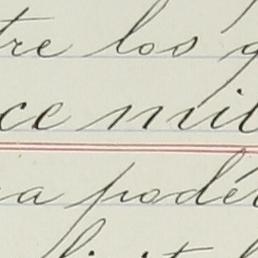 tre los
ce mil
a podé